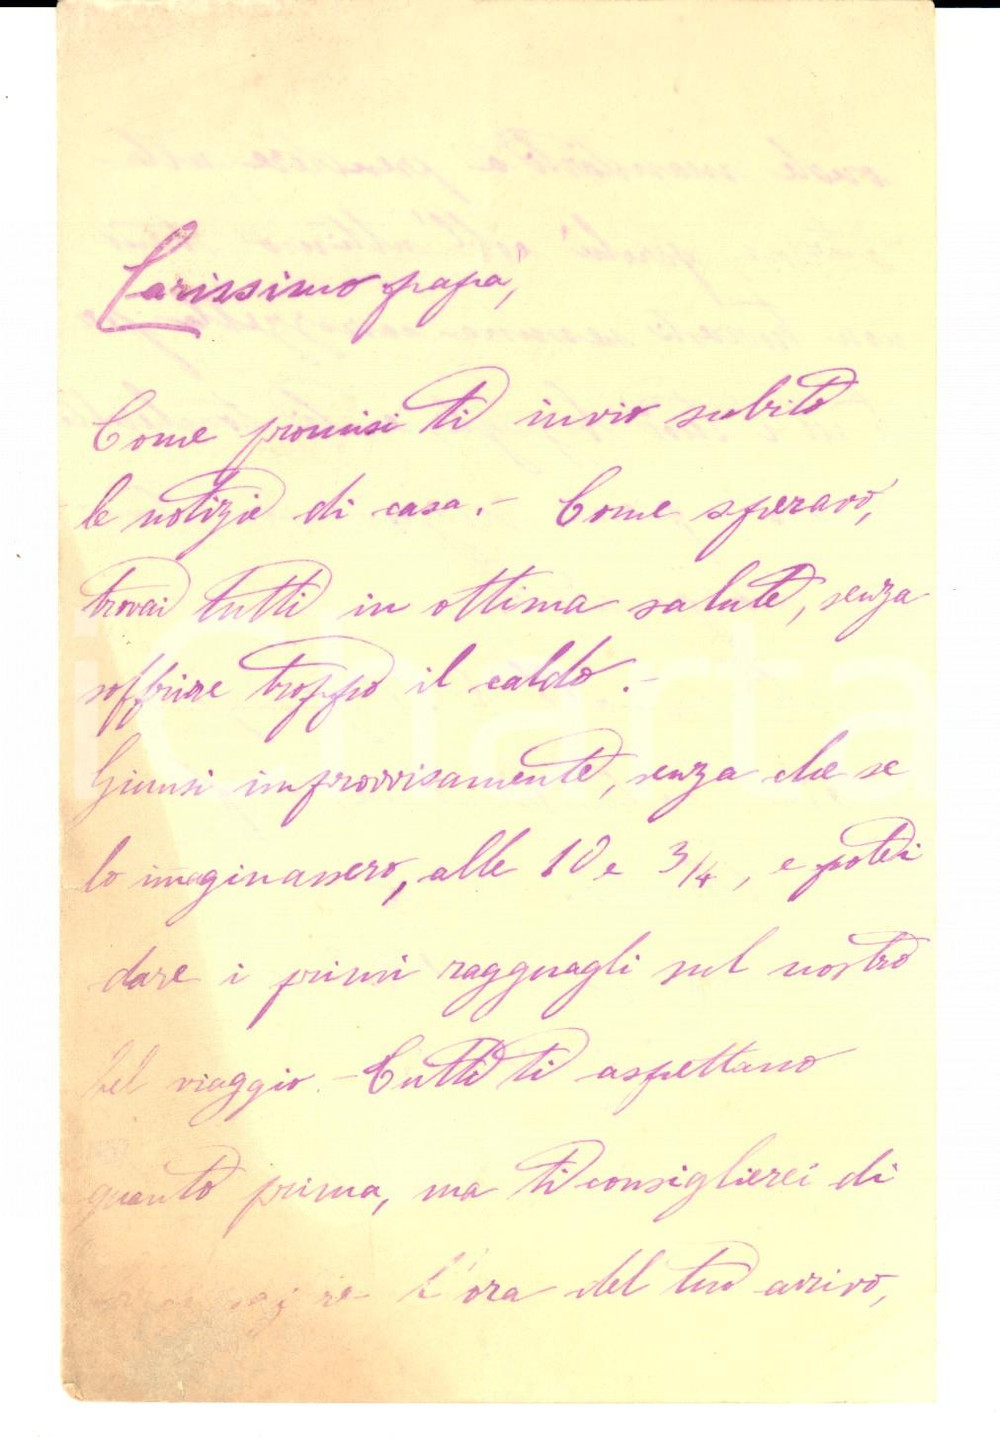 Carissimo papà,
Come promisi ti invio subito
le notizie di casa. - Come speravo,
trovai tutti in ottima salute, senza
soffrire troppo il caldo. -
Giunsi improvvisamente, senza che se
lo imaginassero, alle 10 e 3/4, e potei
dare i primi ragguagli sul nostro
bel viaggio. - Tutti ti aspettano
quanto prima, ma ti consiglierei di
l'ora del tuo arrivo,
iCharta